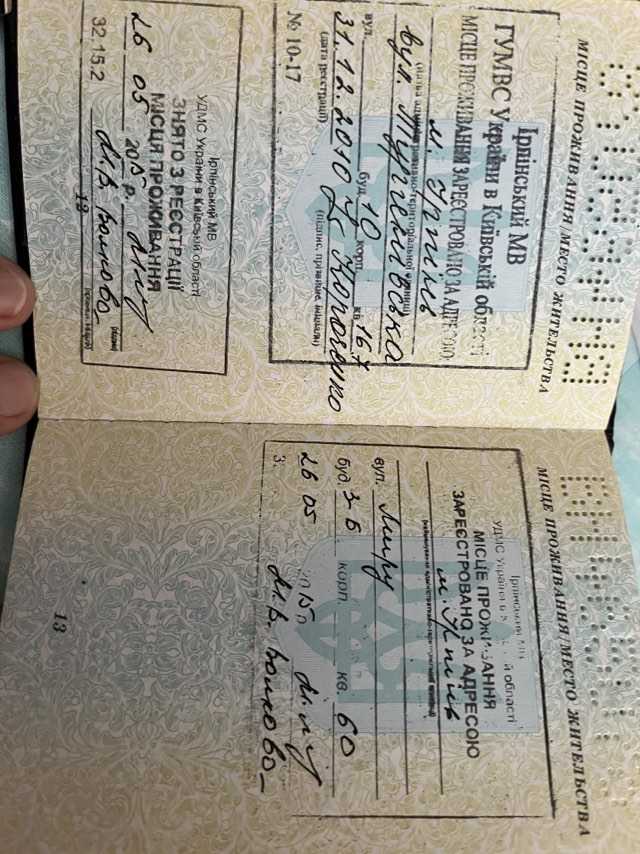 МІСЦЕ ПРОЖИВАННЯ/МЕСТО ЖИТЕЛЬСТВА
Ірпінський МВ
ГУМВС України в Київській області
МІСЦЕ ПРОЖИВАННЯ ЗАРЕЄСТРОВАНО ЗА АДРЕСОЮ
м. Ірпінь
(назва адміністративно-територіальної одиниці)
вул. Тургенівська
вул. буд. 10 корп. кв. 167
31.12.2010
(дата реєстрації) (підпис, прізвище, ініціали)
№ 10-17
Ірпінський МВ
УДМС України в Київській області
ЗНЯТО З РЕЄСТРАЦІЇ
МІСЦЯ ПРОЖИВАННЯ
26 05 2015 р.
32.15.2 М.В. Волково
12
МІСЦЕ ПРОЖИВАННЯ/МЕСТО ЖИТЕЛЬСТВА
Ірпінський МВ
УДМС України в області
МІСЦЕ ПРОЖИВАННЯ
ЗАРЕЄСТРОВАНО ЗА АДРЕСОЮ
м. Ірпінь
вул. Миру
буд. 3-Б корп. кв. 60
26 05 15
3. М.В. Волково
13